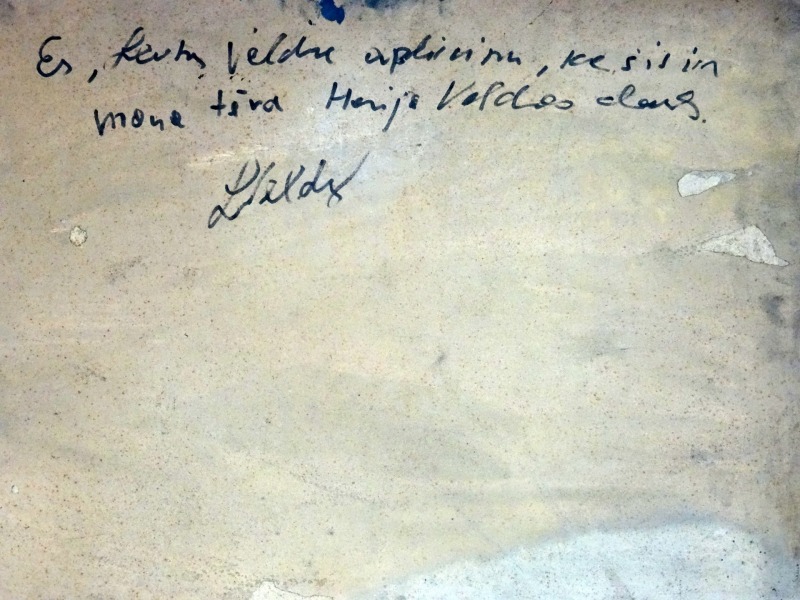 Es, Veldre apliecinu, ka šis ir
mana tēva Veldres darbs.
Veldre